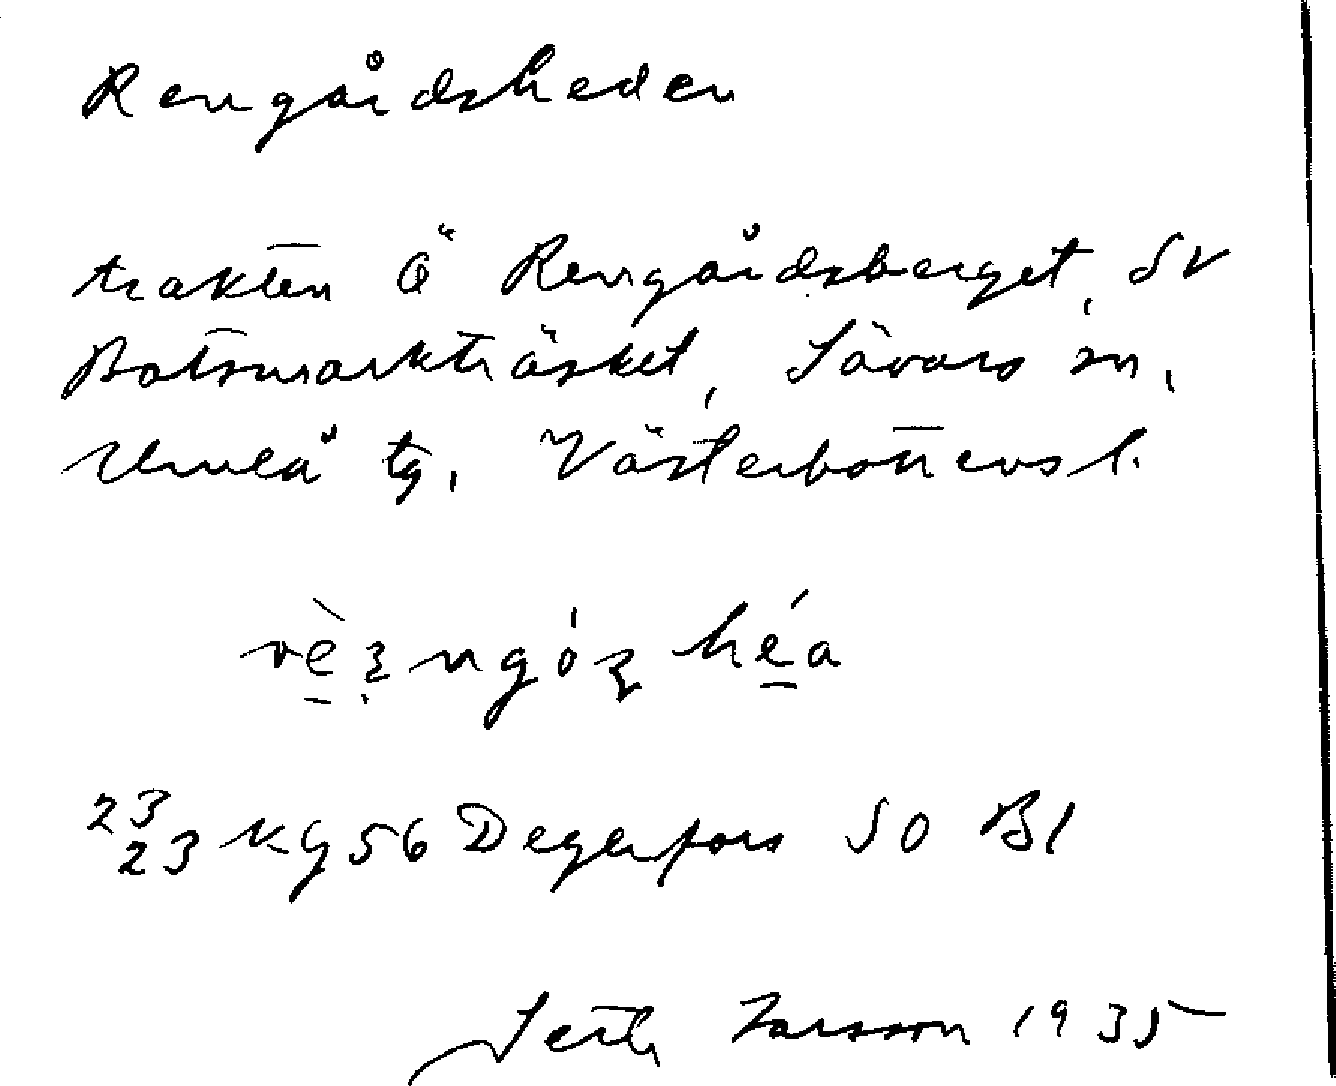 Rengårdsheden
trakten Ö Rengårdsberget, SV
Botsmarkträsket, Sävars sn,
Umeå tg, Västerbottens l.
23 23 Kg 56 Degerfors SO Bl
Seth Larsson 1935